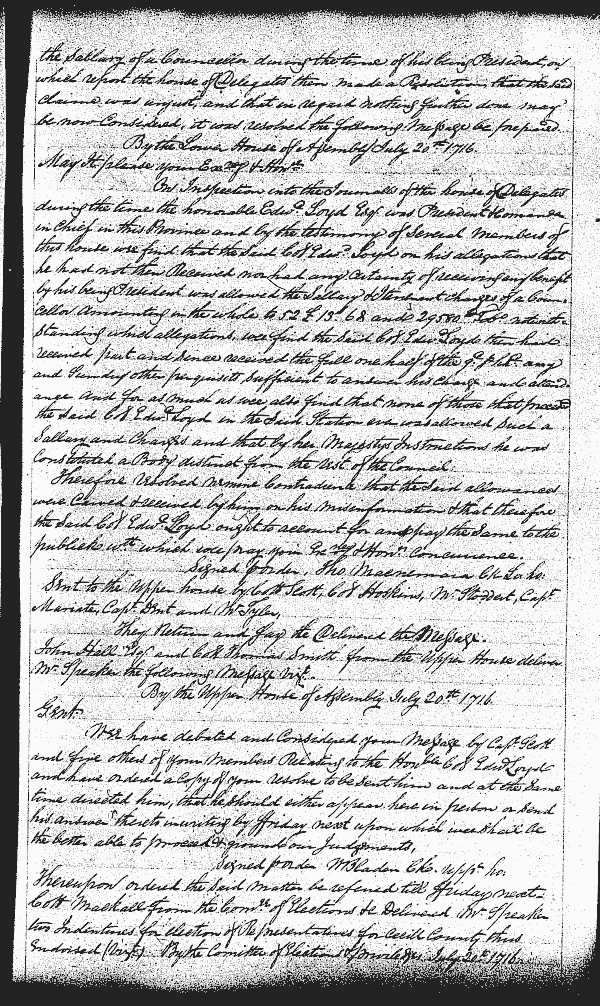 the Sallary of a Councellor during the time of his being President, on
which report the house of Delegates then made a Resolution, that the said
claime was unjust, and that in regard nothing further done may
be now Considered, it was resolved the following Message be prepared.
By the Lower House of Assembly July 20th 1716.
May It please your Excy & Honrs
On Inspection into the Journalls of the house of Delegates
during the time the honorable Edwd. Loyd Esqr was President & Comandr
in Chief in this Province and by the testimony of Several Members of
this house wee find that the Said Col Edwd. Loyd on his allegations that
he had not then Received nor had any Certainty of receiving any benefit
by his being President was allowed the Sallary & Itenerant charges of a Coun-
cellor Amounting in the whole to 52£ 13s 6d and 29580 lbs Tobo notwith-
standing which allegations, wee find the Said Col Edwd Loyd then had
received part and Since received the full one half of the 3d. p hhd. any
and Sundry other perquisits Sufficient to answer his Charge and attend-
ance And for as much as wee also find that none of those that preceded
the Said Col Edwd Loyd in the Said Station ever was allowed Such a
Sallary and Charges and that by her Majestys Instructions he was
Constituted a Body distinct from the rest of the Council.
Therefore resolved nemine Contradicente that the Said allowances
were Caused & received by him on his misinformation & that therefore
the Said Col Edwd. Loyd ought to account for and pay the Same to the
publick wth which wee pray your Excys & Honrs Concurrence.
Signed p order. Tho Macnemara Ck Lo: ho:
Sent to the Upper house by Coll Scott, Col Hoskins, Mr. Stoddert, Capt
Mariate, Capt. Dent and Mr Tyler,
They Return and Say the Delivered the Message.
John Hall Esqr and Col Thomas Smith from the Upper House deliver
Mr. Speaker the following Message vizt.
By the Upper House of Assembly July 20th 1716
Gent.
Wee have debated and Considered your Message by Capt Scott
and five others of your Members Relating to the Honble Col Edwd Loyd
and have ordered a Copy of your resolve to be Sent him and at the Same
time directed him, that he Should either appear here in person or Send
his answer thereto in writing by ffriday next upon which wee Shall be
the better able to proceed & ground our Judgements,
Signed p order W Bladen Ck. uppr ho:
Thereupon ordered the Said matter be referred till ffriday next.
Coll Mackall from the Comtee of Elections &c Delivered Mr Speaker
two Indentures for Election of Representatives for Cecill County thus
Endorsed (Vizt.) By the Comittee of Elections & priviledges July 20th 1716.